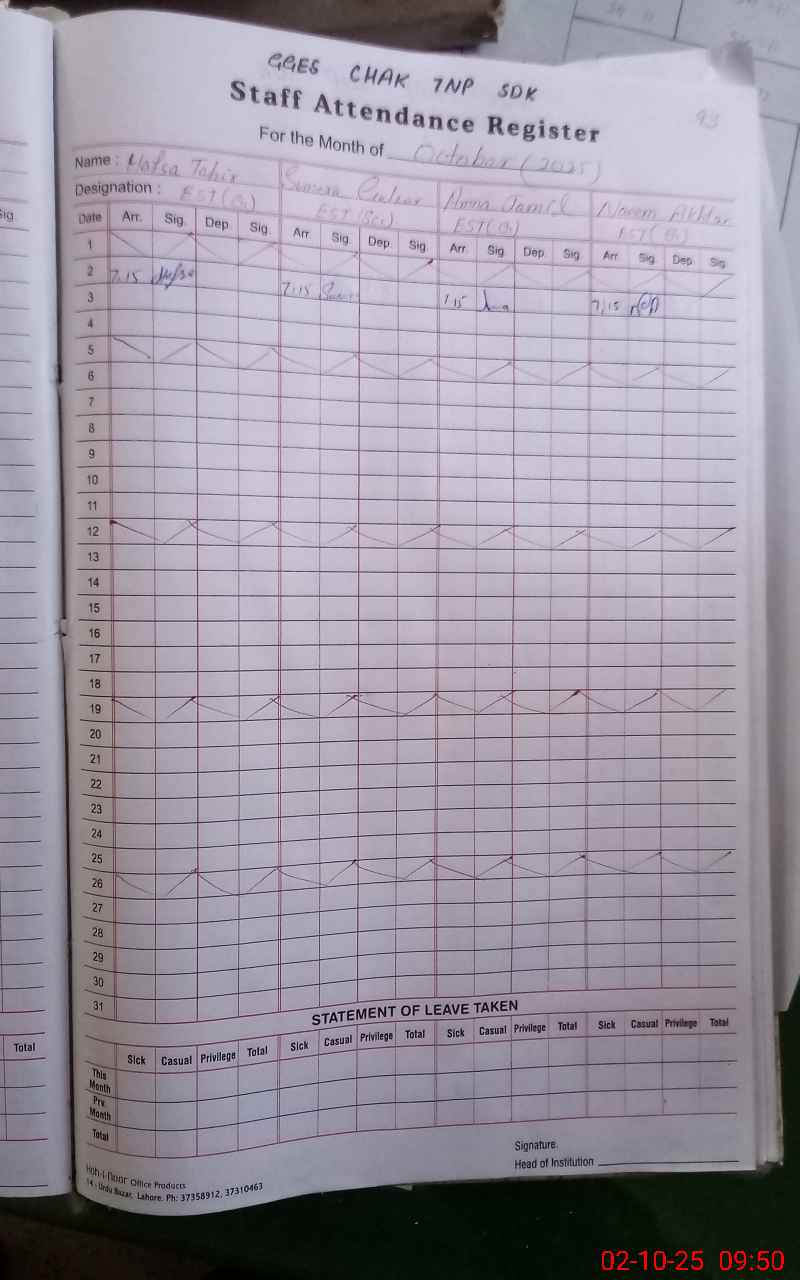 GGES CHAK 7NP SDK
93
Staff Attendance Register
For the Month of October (2025)
Name : Hafsa Tahir Numa Jamil Naeem Akhtar
Designation : EST( EST(Sci) EST( EST(
Date Arr. Sig. Dep. Sig. Arr. Sig. Dep. Sig. Arr. Sig. Dep. Sig. Arr. Sig. Dep. Sig.
1
2 7.15 7.15 7.15 7.15
3
4
5
6
7
8
9
10
11
12
13
14
15
16
17
18
19
20
21
22
23
24
25
26
27
28
29
30
31
STATEMENT OF LEAVE TAKEN
Sick Casual Privilege Total Sick Casual Privilege Total Sick Casual Privilege Total Sick Casual Privilege Total
This Month
Prv. Month
Total
Signature.
Head of Institution
Koh-i-Noor Office Products
14 - Urdu Bazar, Lahore. Ph: 37358912, 37310463
Sig.
Total
02-10-25 09:50